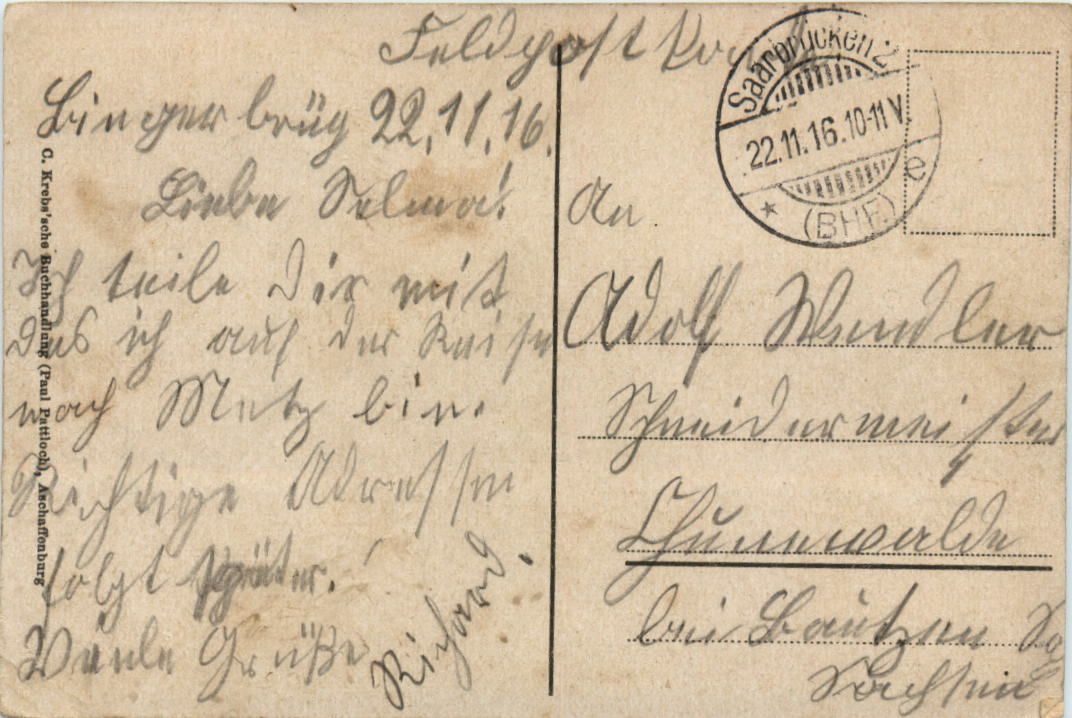 Feldpostkarte
Bingerbrüg 22.11.16.
Liebe Selma!
Ich teile Dir mit
das ich auf der Reise
nach Metz bin.
Richtige Adresse
folgt später.
Viele Grüße
Richard.
C. Krebs'sche Buchhandlung (Paul Pattloch), Aschaffenburg
Saarbrücken 2
22.11.16.10-11V.
* (BHF.) e
An
Adolf Wendler
Schneidermeister
Cunewalde
bei Bautzen
Sachsen